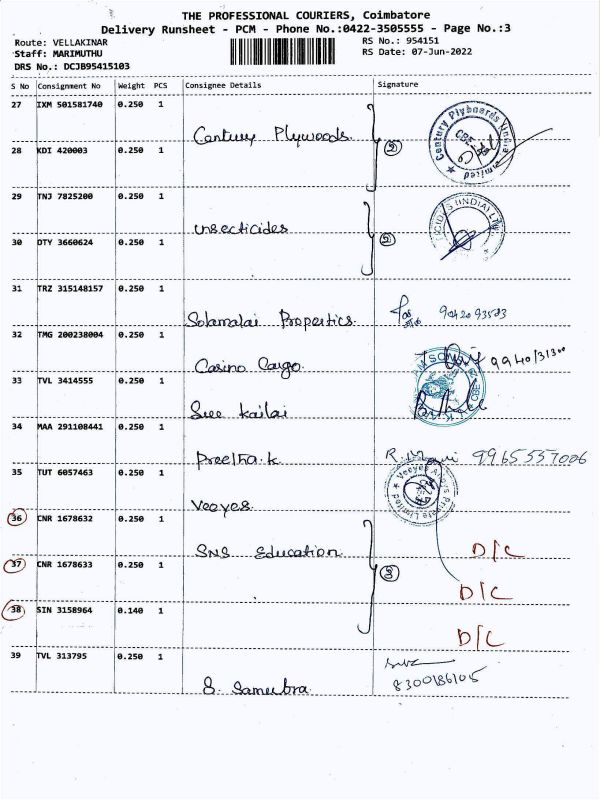 THE PROFESSIONAL COURIERS, Coimbatore
Delivery Runsheet - PCM - Phone No.:0422-3505555 - Page No.:3
Route: VELLAKINAR
RS No.: 954151
Staff: MARIMUTHU
RS Date: 07-Jun-2022
DRS No.: DCJB95415103
S No Consignment No Weight PCS Consignee Details Signature
27 IXM 501581740 0.250 1
Century Plywoods
Century Plyboards (India) Limited
28 KDI 420003 0.250 1
29 TNJ 7825200 0.250 1
insecticides
(INDIA)
30 DTY 3660624 0.250 1
31 TRZ 315148157 0.250 1
Solamalai Properties
32 TMG 200238004 0.250 1
Casino Cargo
33 TVL 3414555 0.250 1
Sree Kailai
34 MAA 291108441 0.250 1
Preetha.k
9965557006
35 TUT 6057463 0.250 1
Veeyes
Private Limited
36 CNR 1678632 0.250 1
SNS Education
D/C
37 CNR 1678633 0.250 1
D/C
38 SIN 3158964 0.140 1
D/C
39 TVL 313795 0.250 1
8300186105